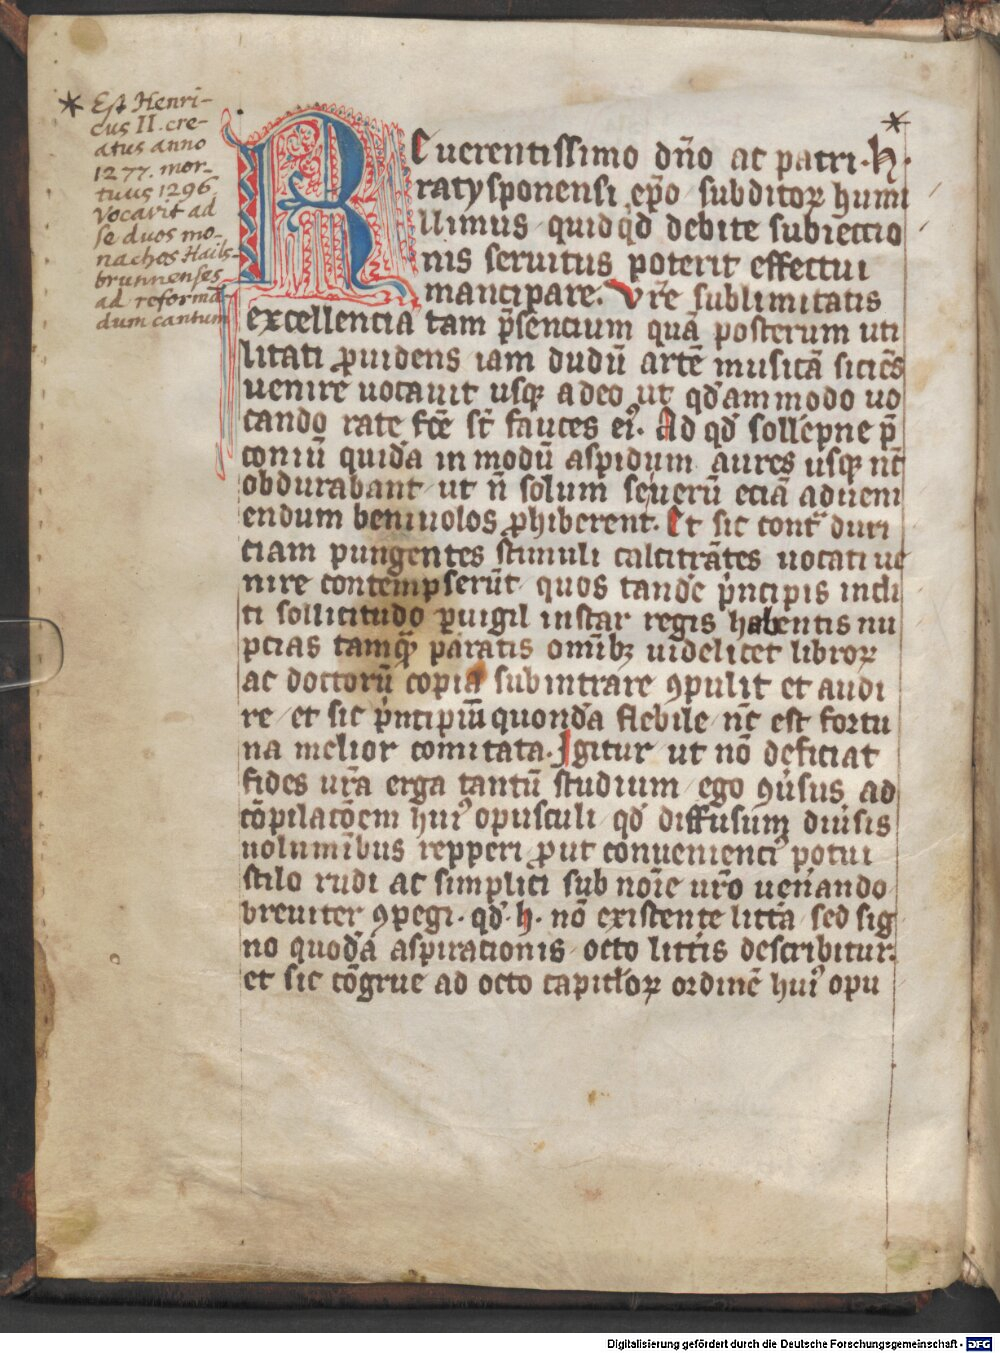 ✶ Est Henri-
cus II. cre-
atus anno
1277. mor-
tuus 1296
Vocavit ad
se duos mo-
nachos Hails-
brunnenses
ad reforma-
dum cantum
✶
Reuerentissimo dn̄o ac patri · h ·
ratysponensi ep̄o / subditoꝝ humi
llimus / quidqd̛ debite subieccio
nis seruitus poterit effectui
mancipare. Vr̄e sublimitatis
excellencia tam p̄sencium quā posterum uti
litati ꝓuidens iam dudū artē musicā siciēs
uenire uocauit usqꝫ adeo ut qd̛ammodo uo
cando rate fc̄e st̄ fauces ei᷒. Ad qd̛ sollēpne p̄
coniū quid̛a in modū aspidum aures usqꝫ nc̄
obdurabant / ut n̄ solum seuerū eciā adueni
endum beniuolos ꝓhiberent. Et sic cont̛ duri
ciam pungentes stimuli calcitrātes uocati ue
nire contempserūt / quos tand̛e p̛ncipis incli
ti sollicitudo ꝑuigil instar regis habentis nu
pcias tamqꝫ paratis omībꝫ uidelicet libroꝝ
ac doctorū copia subintrare ꝯpulit et audi
re / et sic p̛ncipiū quond̛a flebile / nc̄ est fortu
na melior comitata. Igitur ut nō deficiat
fides ur̄a erga tantū studium / ego ꝯuisus ad
cōpilacōem hui᷒ opusculi / qd̛ diffusum diưsis
uolumībus repperi ꝓut conuenienci᷒ potui
stilo rudi ac simplici sub noīe ur̄o uen̄ando
breuiter ꝯpegi · qd̛ · h · nō existente litt̛a / sed sig
no quod̛a aspirationis / octo litt̛is describitur.
et sic cōgrue ad octo capitl̛oꝝ ordinē hui᷒ opu
Digitalisierung gefördert durch die Deutsche Forschungsgemeinschaft - DFG